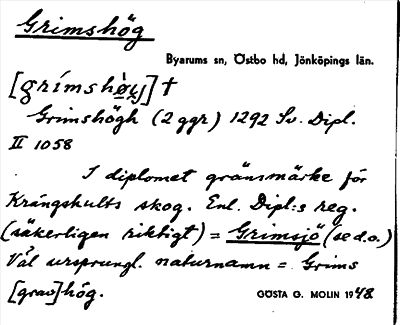 Grimshög
Byarums sn, Östbo hd, Jönköpings län.
[grímshö̀ɰ] †
Grimshögh (2 ggr) 1292 Sv. Dipl.
II 1058
I diplomet gränsmärke för
Krängshults skog. Enl. Dipl:s reg.
(säkerligen riktigt) = Grimsjö (se d.o.)
Väl ursprungl. naturnamn = Grims
[grav]hög.
GÖSTA G. MOLIN 1948.